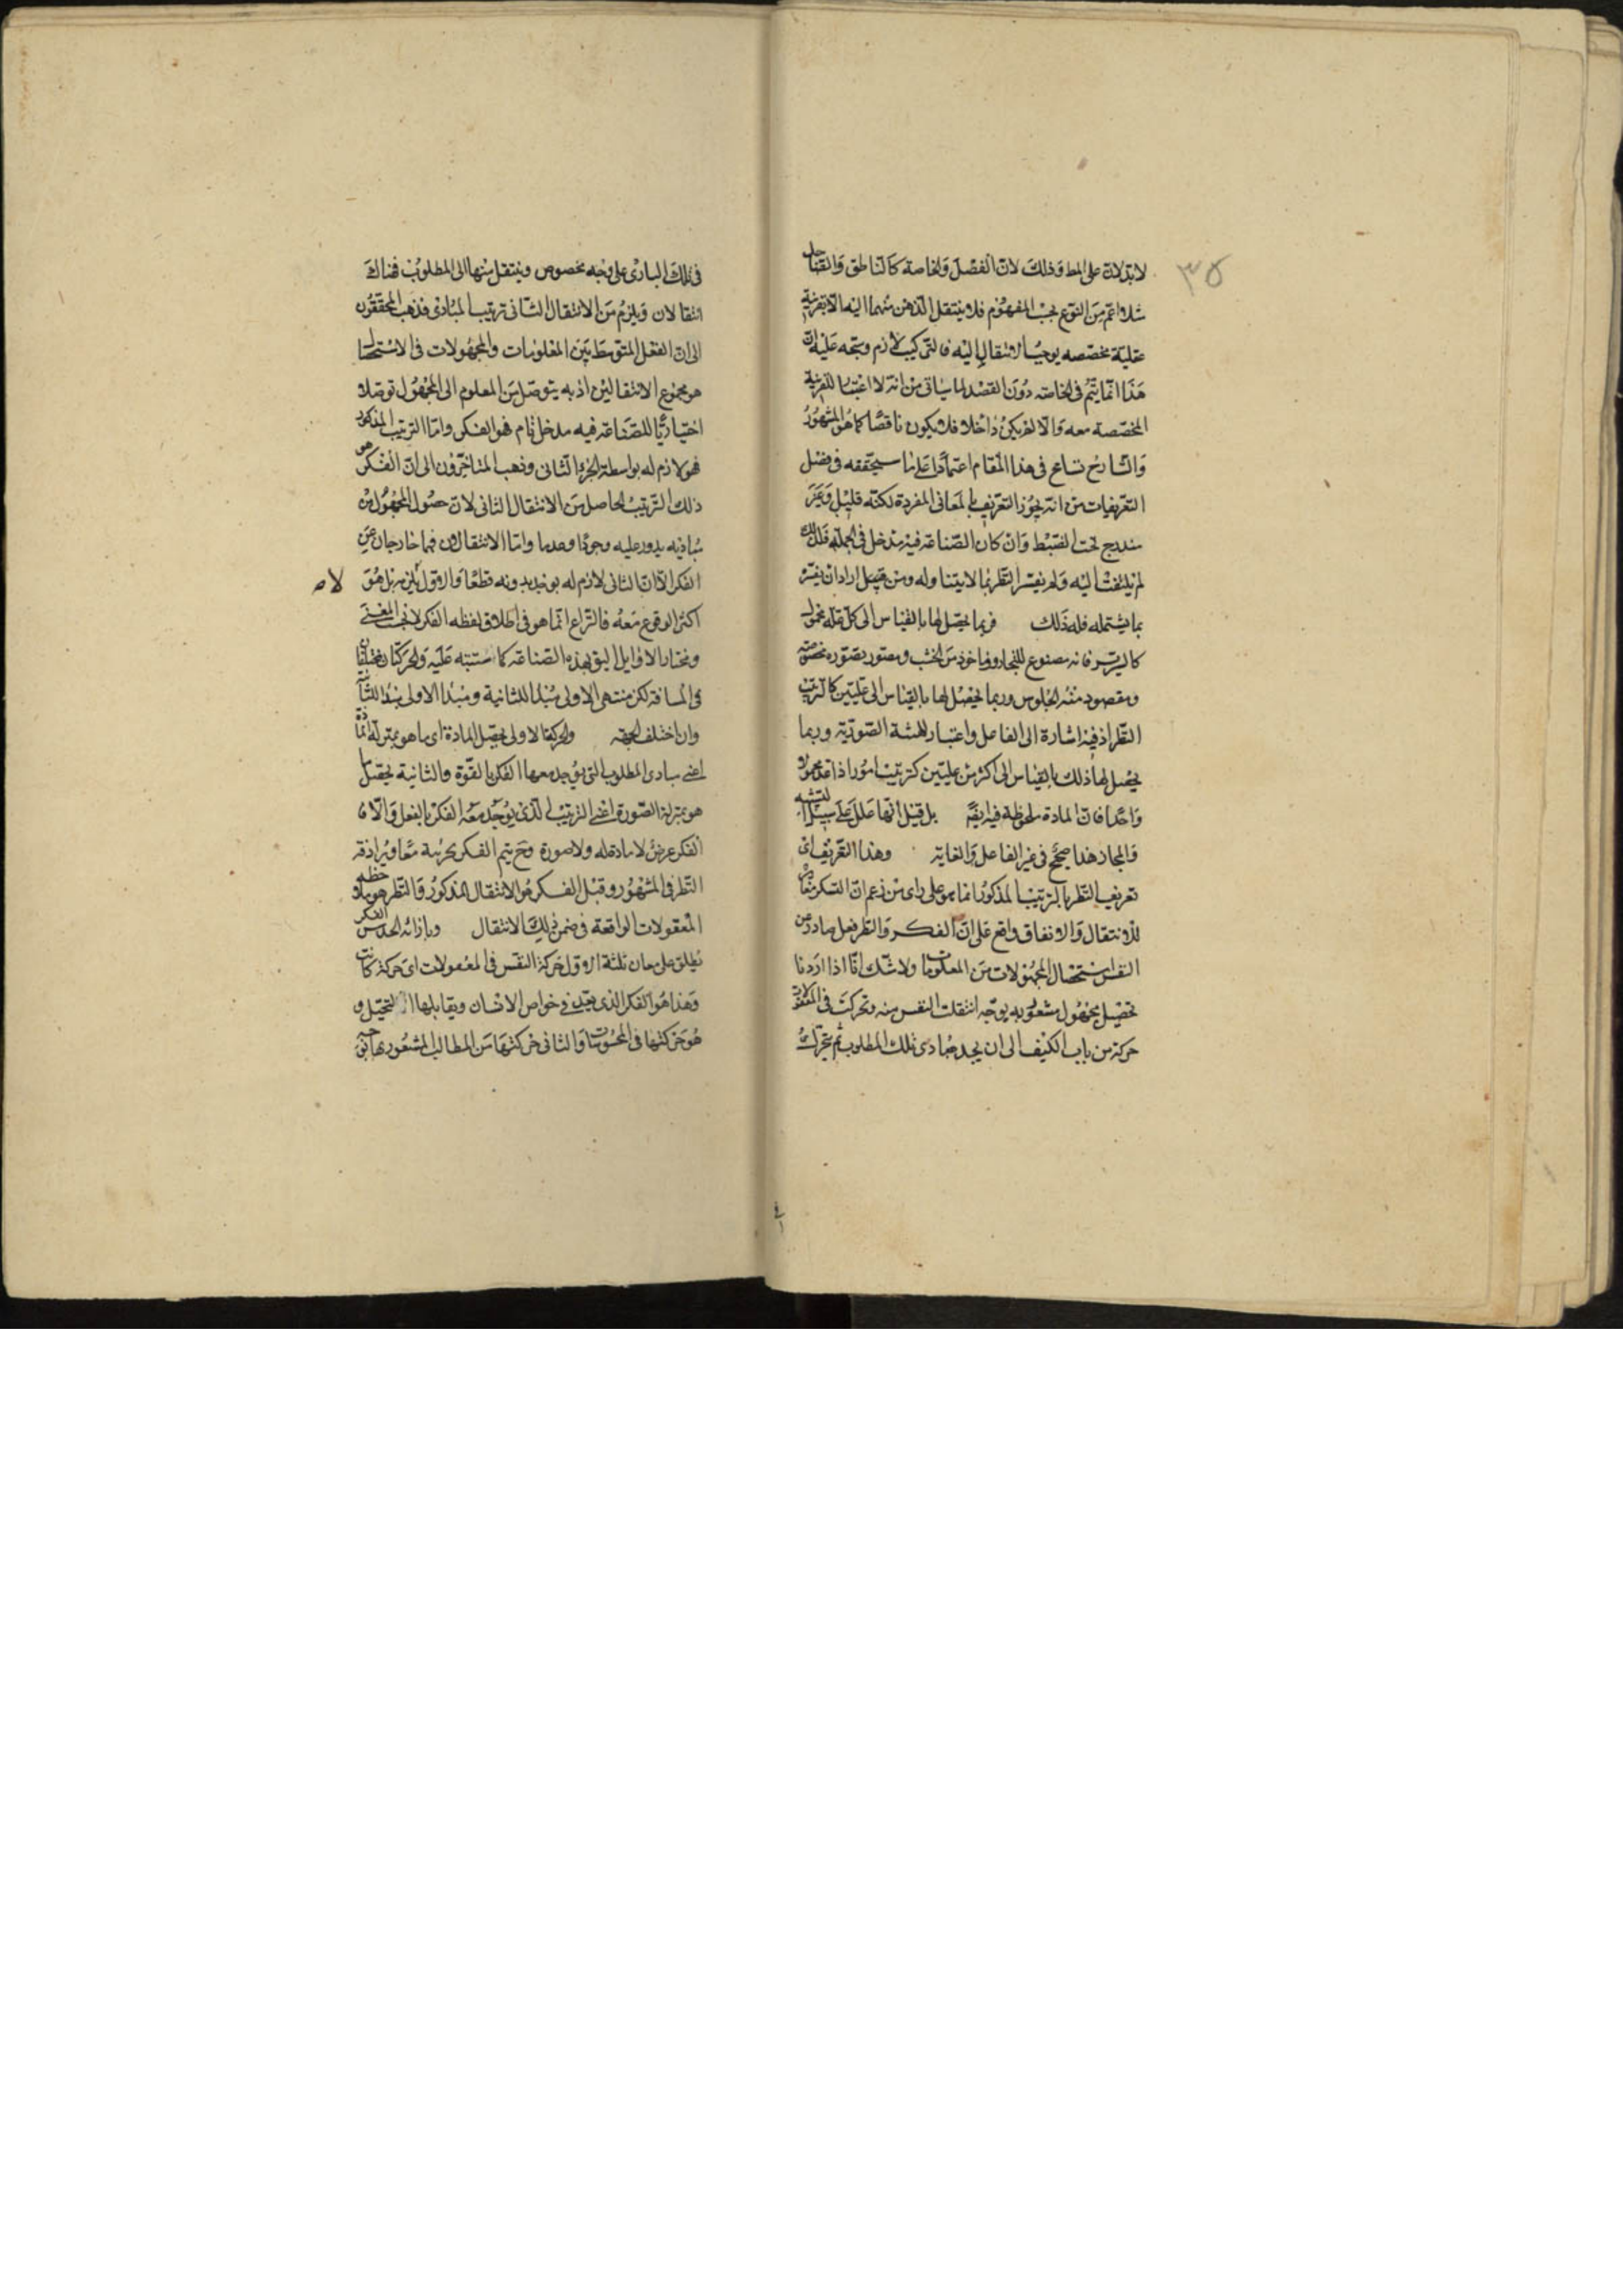 ٣٥
لا يدلان على المط وذلك لان الفصل والخاصة كالناطق والضاحك
مثلا اعم من النوع بحسب المفهوم فلا ينتقل الذهن منهما اليه الا بقرينة
عقلية مخصصه يوجب الانتقال اليه فالتركيب لازم ويتجه عليه ان
هذا انما يتم في الخاصة دون الفصل لما سياتي من انه لا اعتبار للقرينة
المخصصة معه والا لم يكن داخلا فلا يكون ناقصا كما هو المشهور
والشارح تسامح في هذا المقام اعتمادا على ما سيحققه في فصل
التعريفات من انه يجوز التعريف بالمعاني المفردة لكنه قليل وغير
مندرج تحت الضبط وان كان الصناعة فيه مدخل في الجملة فلذلك
لم يلتفت اليه ولم يفسر النظر بما لا يتناوله ومن اراد ان يفسر
بما يشتمله فله ذلك فربما يحصل لها بالقياس الى كل علة محمول
كالسرير فانه مصنوع للنجار وماخوذ من الخشب ومصور بصورة مخصوصة
ومقصود منه الجلوس وربما يحصل لها بالقياس الى علتين كالترتيب
النظر اذ فيه اشارة الى الفاعل واعتبار للهيئة الصورية وربما
يحصل لها ذلك بالقياس الى اكثر من علتين كترتيب امور اذا عد محمولا
واحدا فان المادة ملحوظة فيه ايضا بل قيل انها علل على سبيل التشبيه
والمجاز هذا صحيح في غير الفاعل والغاية وهذا التعريف اى
تعريف النظر بالترتيب المذكور انما هو على راى من زعم ان الفكر مغاير
للانتقال والاتفاق واقع على ان الفكر والنظر فعل صادر عن
النفس استحضال المجهولات من المعلومات ولا شك انا اذا اردنا
تحصيل مجهول مشعور به بوجه انتقلت النفس منه وتحركت في المعقولات
حركة من باب الكيف الى ان يجد مبادى ذلك المطلوب ثم يتحرك
في تلك المبادى على وجه مخصوص وينتقل منها الى المطلوب فهناك
انتقالان ويلزم من الانتقال الثاني ترتيب المبادى فذهب المحققون
الى ان الفعل المتوسط بين المعلومات والمجهولات في الاستحصال
هو مجموع الانتقالين اذ به يتوصل من المعلوم الى المجهول توصلا
اختياريا للصناعة فيه مدخل تام فهو الفكر واما الترتيب المذكور
فهو لازم له بواسطة الجزء الثاني وذهب المتاخرون الى ان الفكر هو
ذلك الترتيب الحاصل من الانتقال الثاني لان حصول المجهول من
مباديه يدور عليه وجودا وعدما واما الانتقالان فهما خارجان عن
الفكر الا ان الثاني لازم له لا يوجد بدونه قطعا والاول لا يلزم بل هو
اكثر الوقوع معه فالنزاع انما هو في اطلاق لفظه الفكر لا بحسب المعنى
ونختار الاوايل اليق بهذه الصناعة كما ستنبه عليه والحركتان مختلفتان
في المسافة لكن منتهى الاولى مبدا للثانية ومبدا الاولى منتهى للثانية
وان اختلف الجهة والحركة الاولى يحصل المادة اى ما هو بمنزلة المادة
اعنى مبادى المطلوب التي يوجد معها الفكر بالقوة والثانية يحصل ما
هو بمنزلة الصورة اعنى الترتيب الذى يوجد معه الفكر بالفعل والا فا
الفكر عرض لا مادة له ولا صورة وح يتم الفكر بجزئيه معا ويرادفه
النظر في المشهور وقيل الفكر هو الانتقال المذكور والنظر هو ملاحظه
المعقولات الواقعة في ضمن ذلك الانتقال وبازائه الحدس الفكر
يطلق على معان ثلثة الاول حركة النفس في المعقولات اى حركة كانت
وهذا هو الفكر الذى يعد في خواص الانسان ويقابلها التخيل و
هو حركتها في المحسوسات والثاني حركتها من المطالب المشعور بها